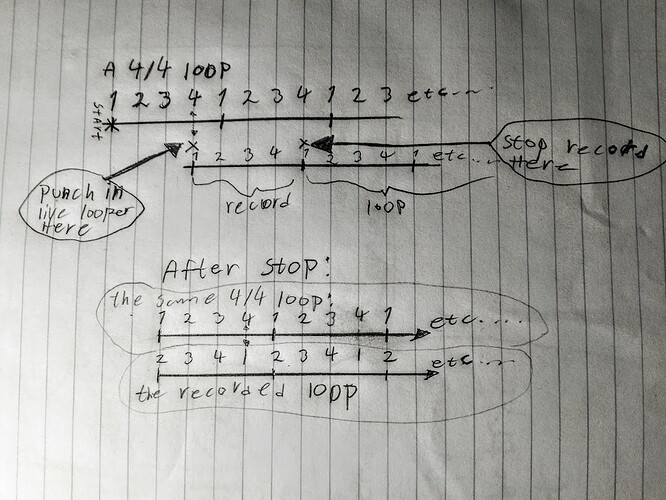 A 4/4 loop
1 2 3 4 1 2 3 4 1 2 3 etc....
START
1 2 3 4 1 2 3 4 1 etc...
stop record
Here
Punch in
live looper
Here
record
loop
After stop:
the same 4/4 loop:
1 2 3 4 1 2 3 4 1 etc....
2 3 4 1 2 3 4 1 2 etc...
the recorded loop